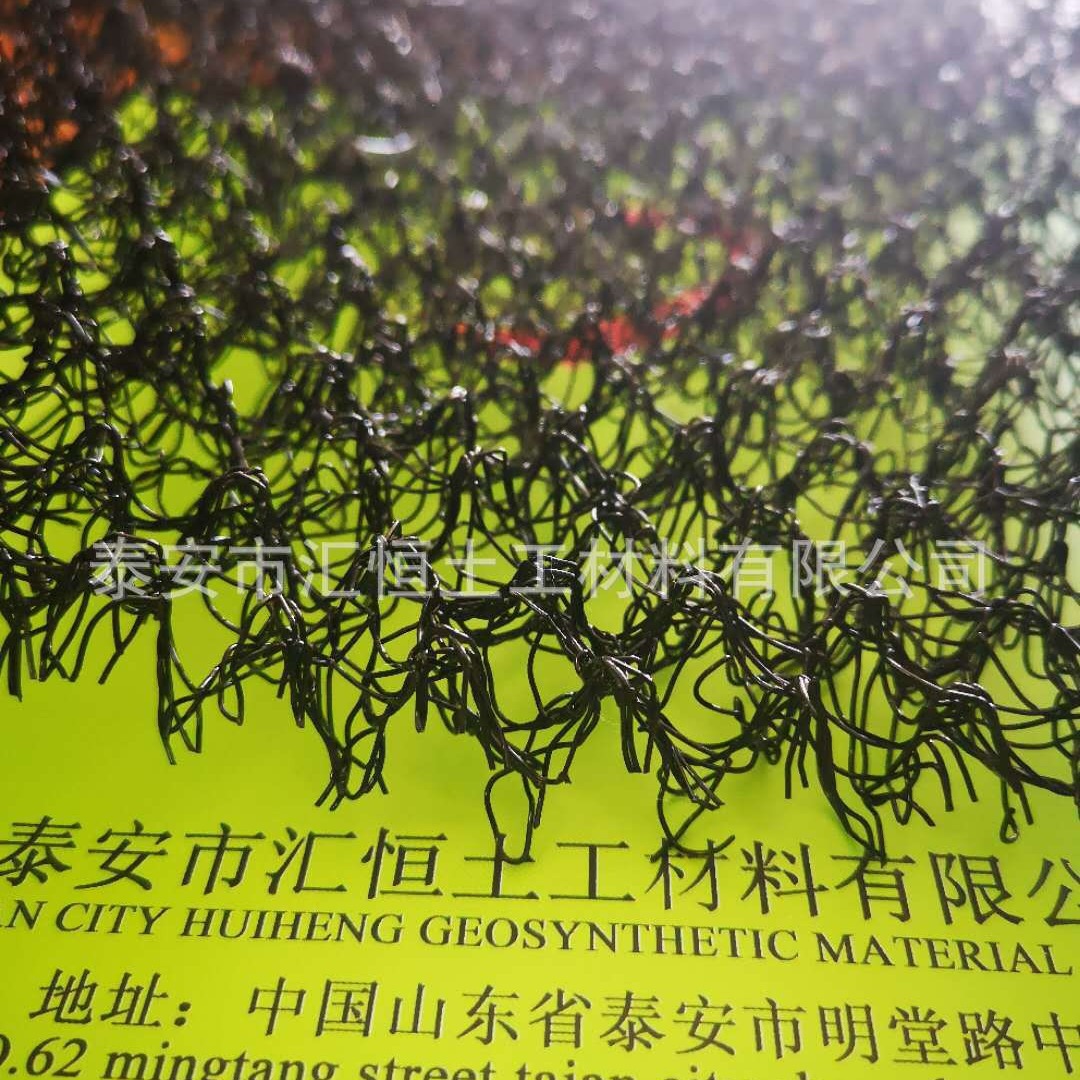 泰安市汇恒土工材料有限公司
泰安市汇恒土工材料有限公
AN CITY HUIHENG GEOSYNTHETIC MATERIAL
地址：中国山东省泰安市明堂路中
.62 mingtang street taian city